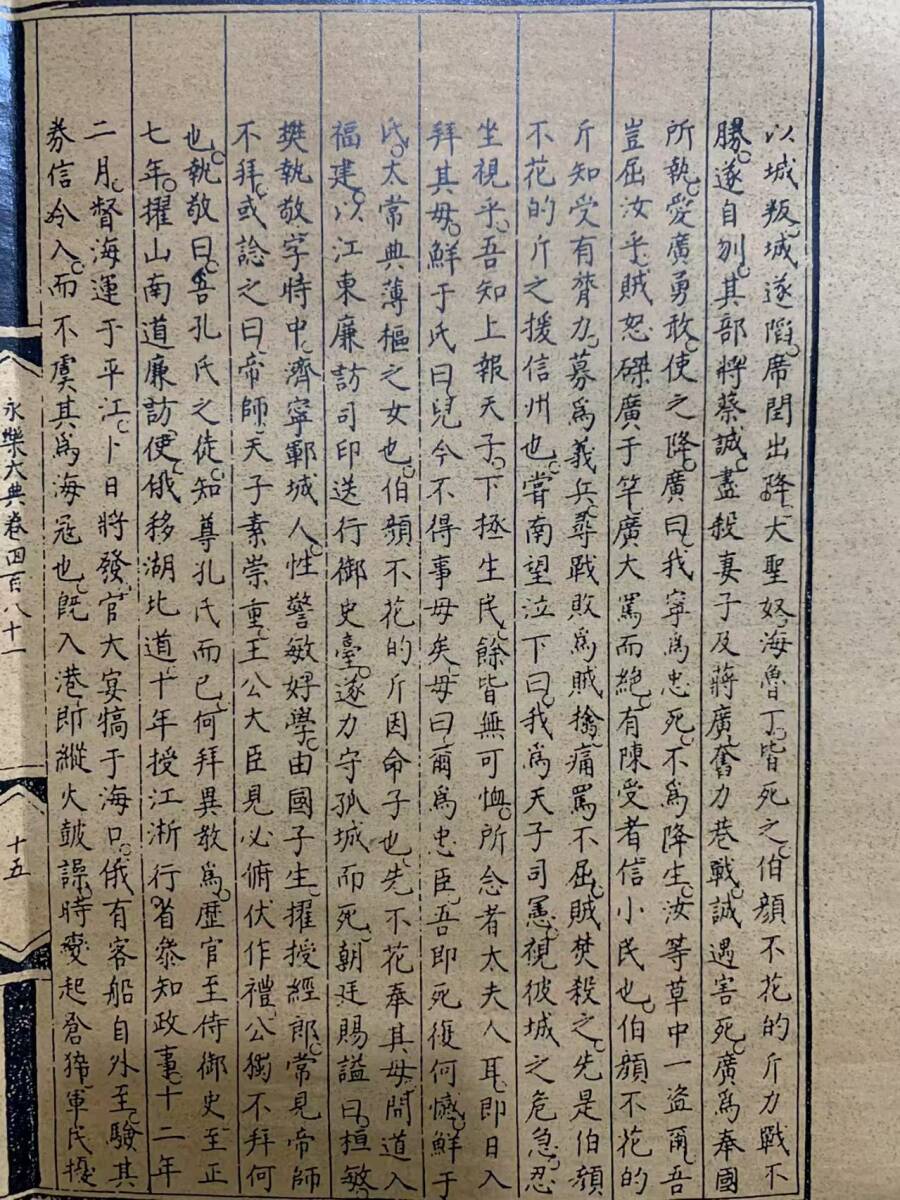 以城叛城遂陷席閏出降大聖奴海魯丁皆死之伯顔不花的斤力戰不
勝遂自刎其部將蔡誠盡殺妻子及蔣廣奮力巷戰誠遇害死廣爲奉國
所執愛廣勇敢使之降廣曰我寧爲忠死不爲降生汝等草中一盗爾吾
豈屈汝乎賊怒磔廣于竿廣大罵而絶有陳受者信小民也伯顔不花的
斤知受有膂力募爲義兵尋戰敗爲賊擒痛罵不屈賊焚殺之先是伯顔
不花的斤之援信州也嘗南望泣下曰我爲天子司憲視彼城之危急忍
坐視乎吾知上報天子下拯生民餘皆無可恤所念者太夫人耳即日入
拜其母鮮于氏曰兒今不得事母矣母曰爾爲忠臣吾即死復何憾鮮于
氏太常典薄樞之女也伯顔不花的斤因命子也先不花奉其母間道入
福建以江東廉訪司印送行御史臺遂力守孤城而死朝廷賜謚曰桓敏
樊執敬字時中濟寧鄆城人性警敏好學由國子生擢授經郎常見帝師
不拜或諗之曰帝師天子素崇重王公大臣見必俯伏作禮公獨不拜何
也執敬曰吾孔氏之徒知尊孔氏而已何拜異教爲歷官至侍御史至正
七年擢山南道廉訪使俄移湖北道十年授江淅行省參知政事十二年
二月督海運于平江卜日將發官大宴犒于海口俄有客船自外至驗其
券信令入而不虞其爲海寇也既入港即縱火皷譟時變起倉猝軍民擾
永樂大典卷四百八十一
十五